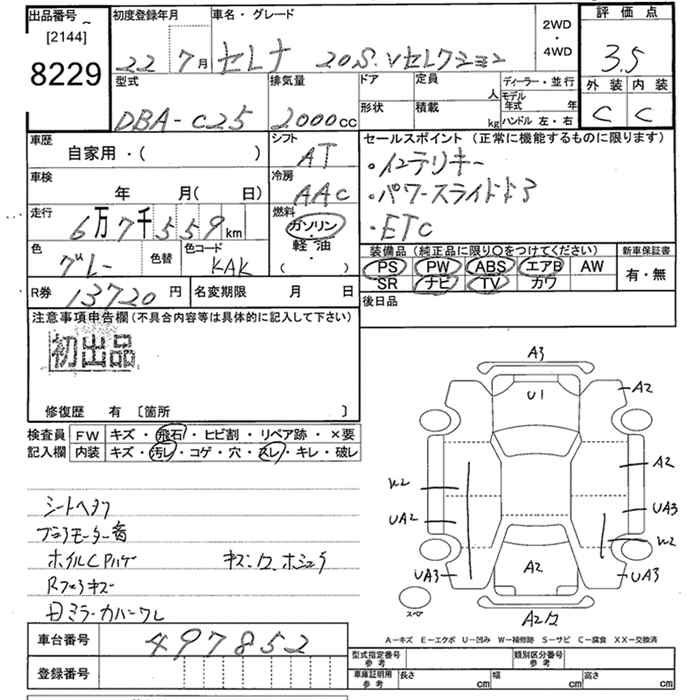 出品番号 初度登録年月 車名・グレード 2WD ・ 4WD 評価点
[2144]
8229 22 7月 セレナ 20S.Vセレクション 3.5
型式 排気量 ドア 定員 人 ディーラー・並行 外装 内装
モデル年式 年
DBA-C25 2000cc 形状 積載 kg ハンドル 左・右 C C
車歴 シフト セールスポイント (正常に機能するものに限ります)
自家用・( ) AT ・インテリキー
車検 冷房 ・パワースライドドア
年 月( 日) AAC
走行 燃料 ・ETC
6万7千559km ガソリン・
色 色替 色コード 軽油・ 装備品(純正品に限り○をつけてください) 新車保証書
グレー KAK ( ) PS PW ABS エアB AW 有・無
R券 13720円 名変期限 月 日 SR ナビ TV カワ
後日品
注意事項申告欄(不具合内容等は具体的に記入して下さい)
初出品
修復歴 有 〔箇所 〕
検査員 FW キズ・飛石・ヒビ割・リペア跡・×要
記入欄 内装 キズ・汚レ・コゲ・穴・スレ・キレ・破レ
シートヘタワ
ブロアモーター音
ホイルCPハゲ キズ.ワ.ホシュウ
Rフェンキズ
日ミラーカバーワレ
A3
U1 A2
W2 A2
UA2 UA3
W2
UA3 A2 UA3
スペア
A2ワ
A-キズ E-エクボ U-凹み W-補修跡 S-サビ C-腐食 XX-交換済
車台番号 497852 型式指定番号 参考 類別区分番号 参考
登録番号 車庫証明用 参考 長さ cm 幅 cm 高さ cm